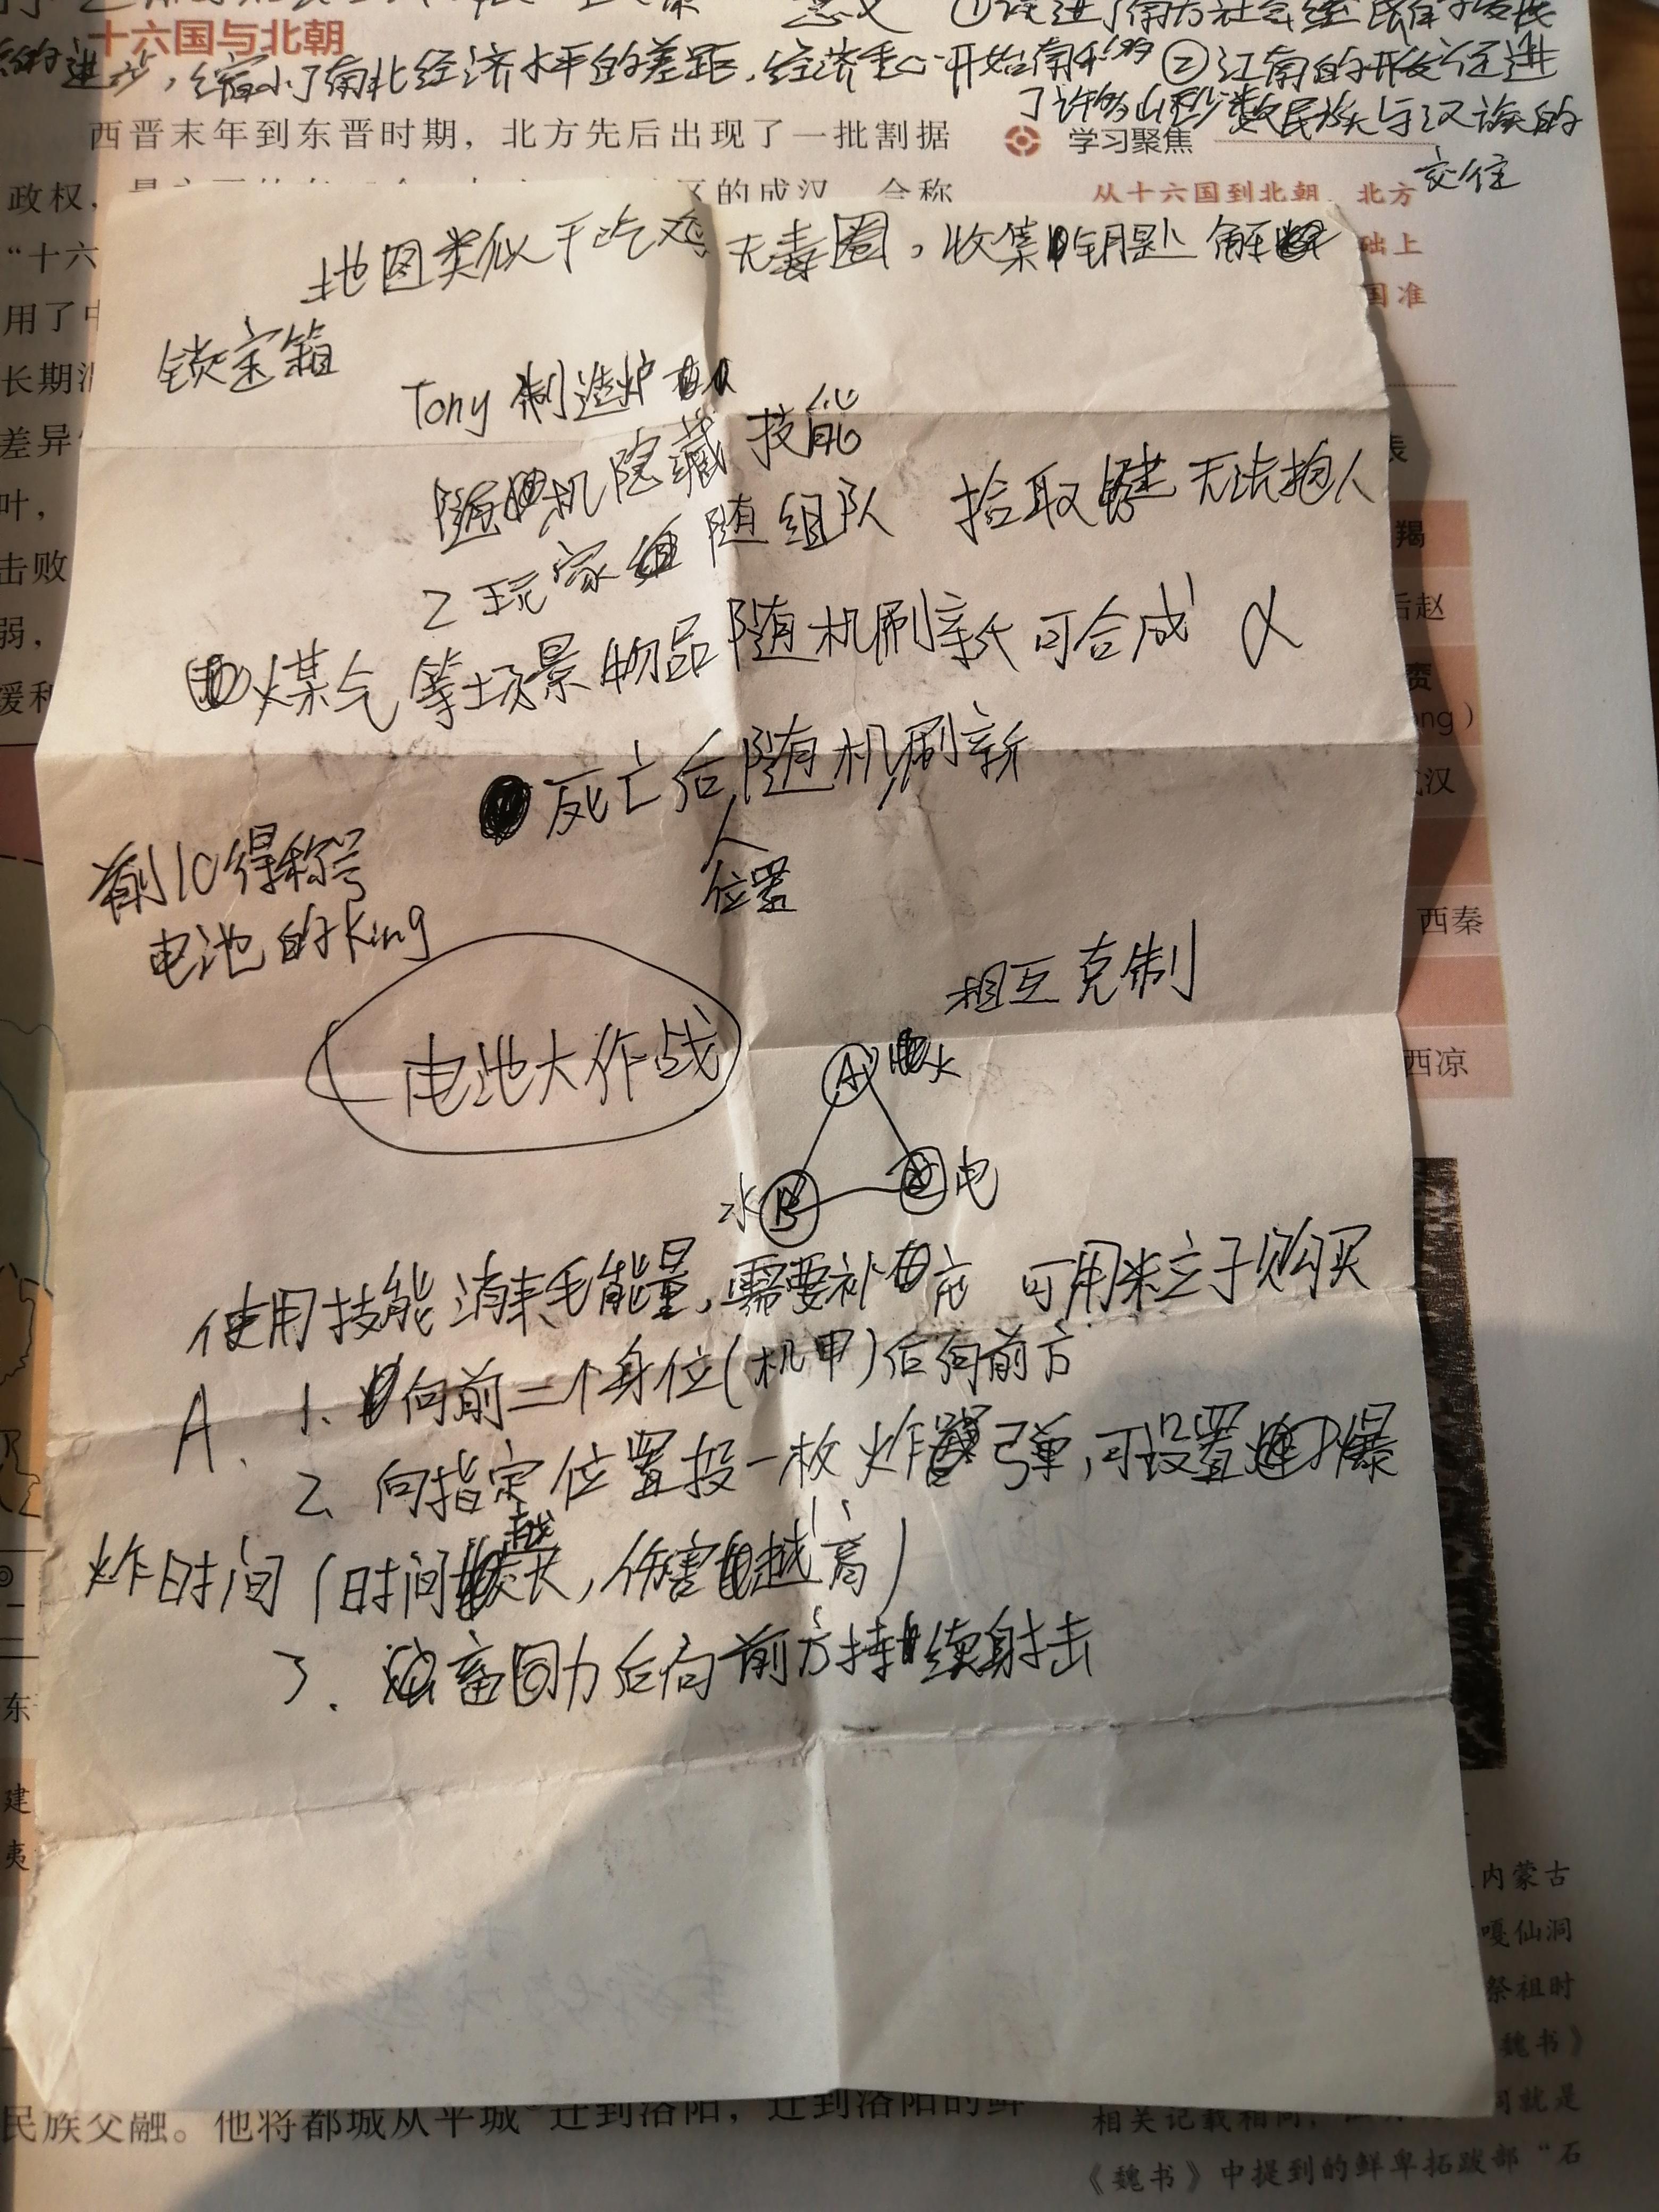 十六国与北朝
意义 ①促进了南方社会经
的进步,缩小了南北经济水平的差距,经济重心开始南移 ②江南的开发促进
了许多山区少数民族与汉族的
交往
西晋末年到东晋时期,北方先后出现了一批割据
学习聚焦
政权,
区的成汉,合称
从十六国到北朝,北方
“十六
础上
用了中
国准
长期
差异
叶,
击败
弱,
缓和
地图类似于吃鸡无毒圈,收集钥匙解
锁宝箱
Tony 制造炉
随机隐藏技能
2玩家随组队 拾取键无法抱人
煤气等场景物品随机刷新 可合成 α
死亡后随机刷新
人
位置
前10得称号
电池的King
电池大作战
相互克制
A 火
水 B
电
使用技能消耗能量,需要补充 可用粒子购买
A. 1. 向前二个身位(机甲)后向前方
2. 向指定位置投一枚炸弹,可设置爆
炸时间(时间越长,伤害越高)
3. 蓄力后向前方持续射击
羯
后赵
賨
ong)
成汉
西秦
西凉
东
建
夷
内蒙古
嘎仙洞
祭祖时
魏书》
民族交融。他将都城从平城 迁到洛阳,迁到洛阳的鲜
相关记载相同,
洞就是
《魏书》中提到的鲜卑拓跋部“石